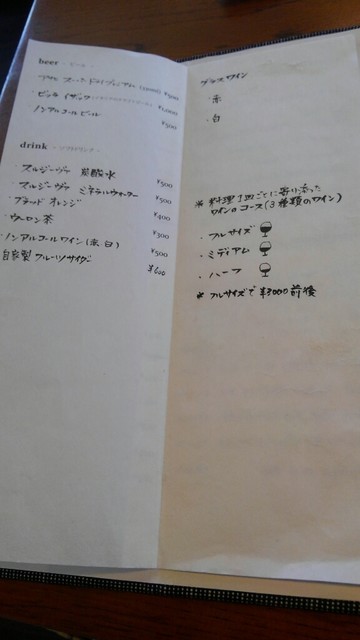 beer - ビール -
・アサヒ スーパードライプレミアム ¥500
・ビッラ イザック ¥1,000
・ノンアルコールビール ¥500
drink - ソフトドリンク -
・スルジーヴァ 炭酸水 ¥500
・スルジーヴァ ミネラルウォーター ¥500
・ブラッド オレンジ ¥400
・ウーロン茶 ¥300
・ノンアルコールワイン(赤, 白) ¥500
自家製 フルーツサイダー ¥600
グラスワイン
・赤
・白
* 料理1皿ごとに寄り添った
ワインのコース(3種類のワイン)
・フルサイズ
・ミディアム
・ハーフ
* フルサイズで ¥3000 前後